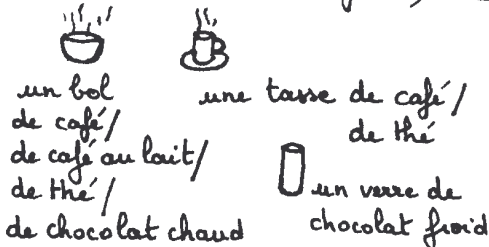 un bol
de café/
de café au lait/
de thé/
de chocolat chaud
une tasse de café/
de thé
un verre de
chocolat froid